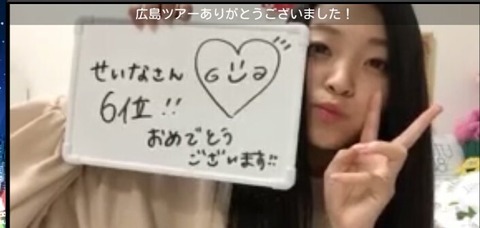 広島ツアーありがとうございました！
せいなさん
6位!!
おめでとう
ございます!!